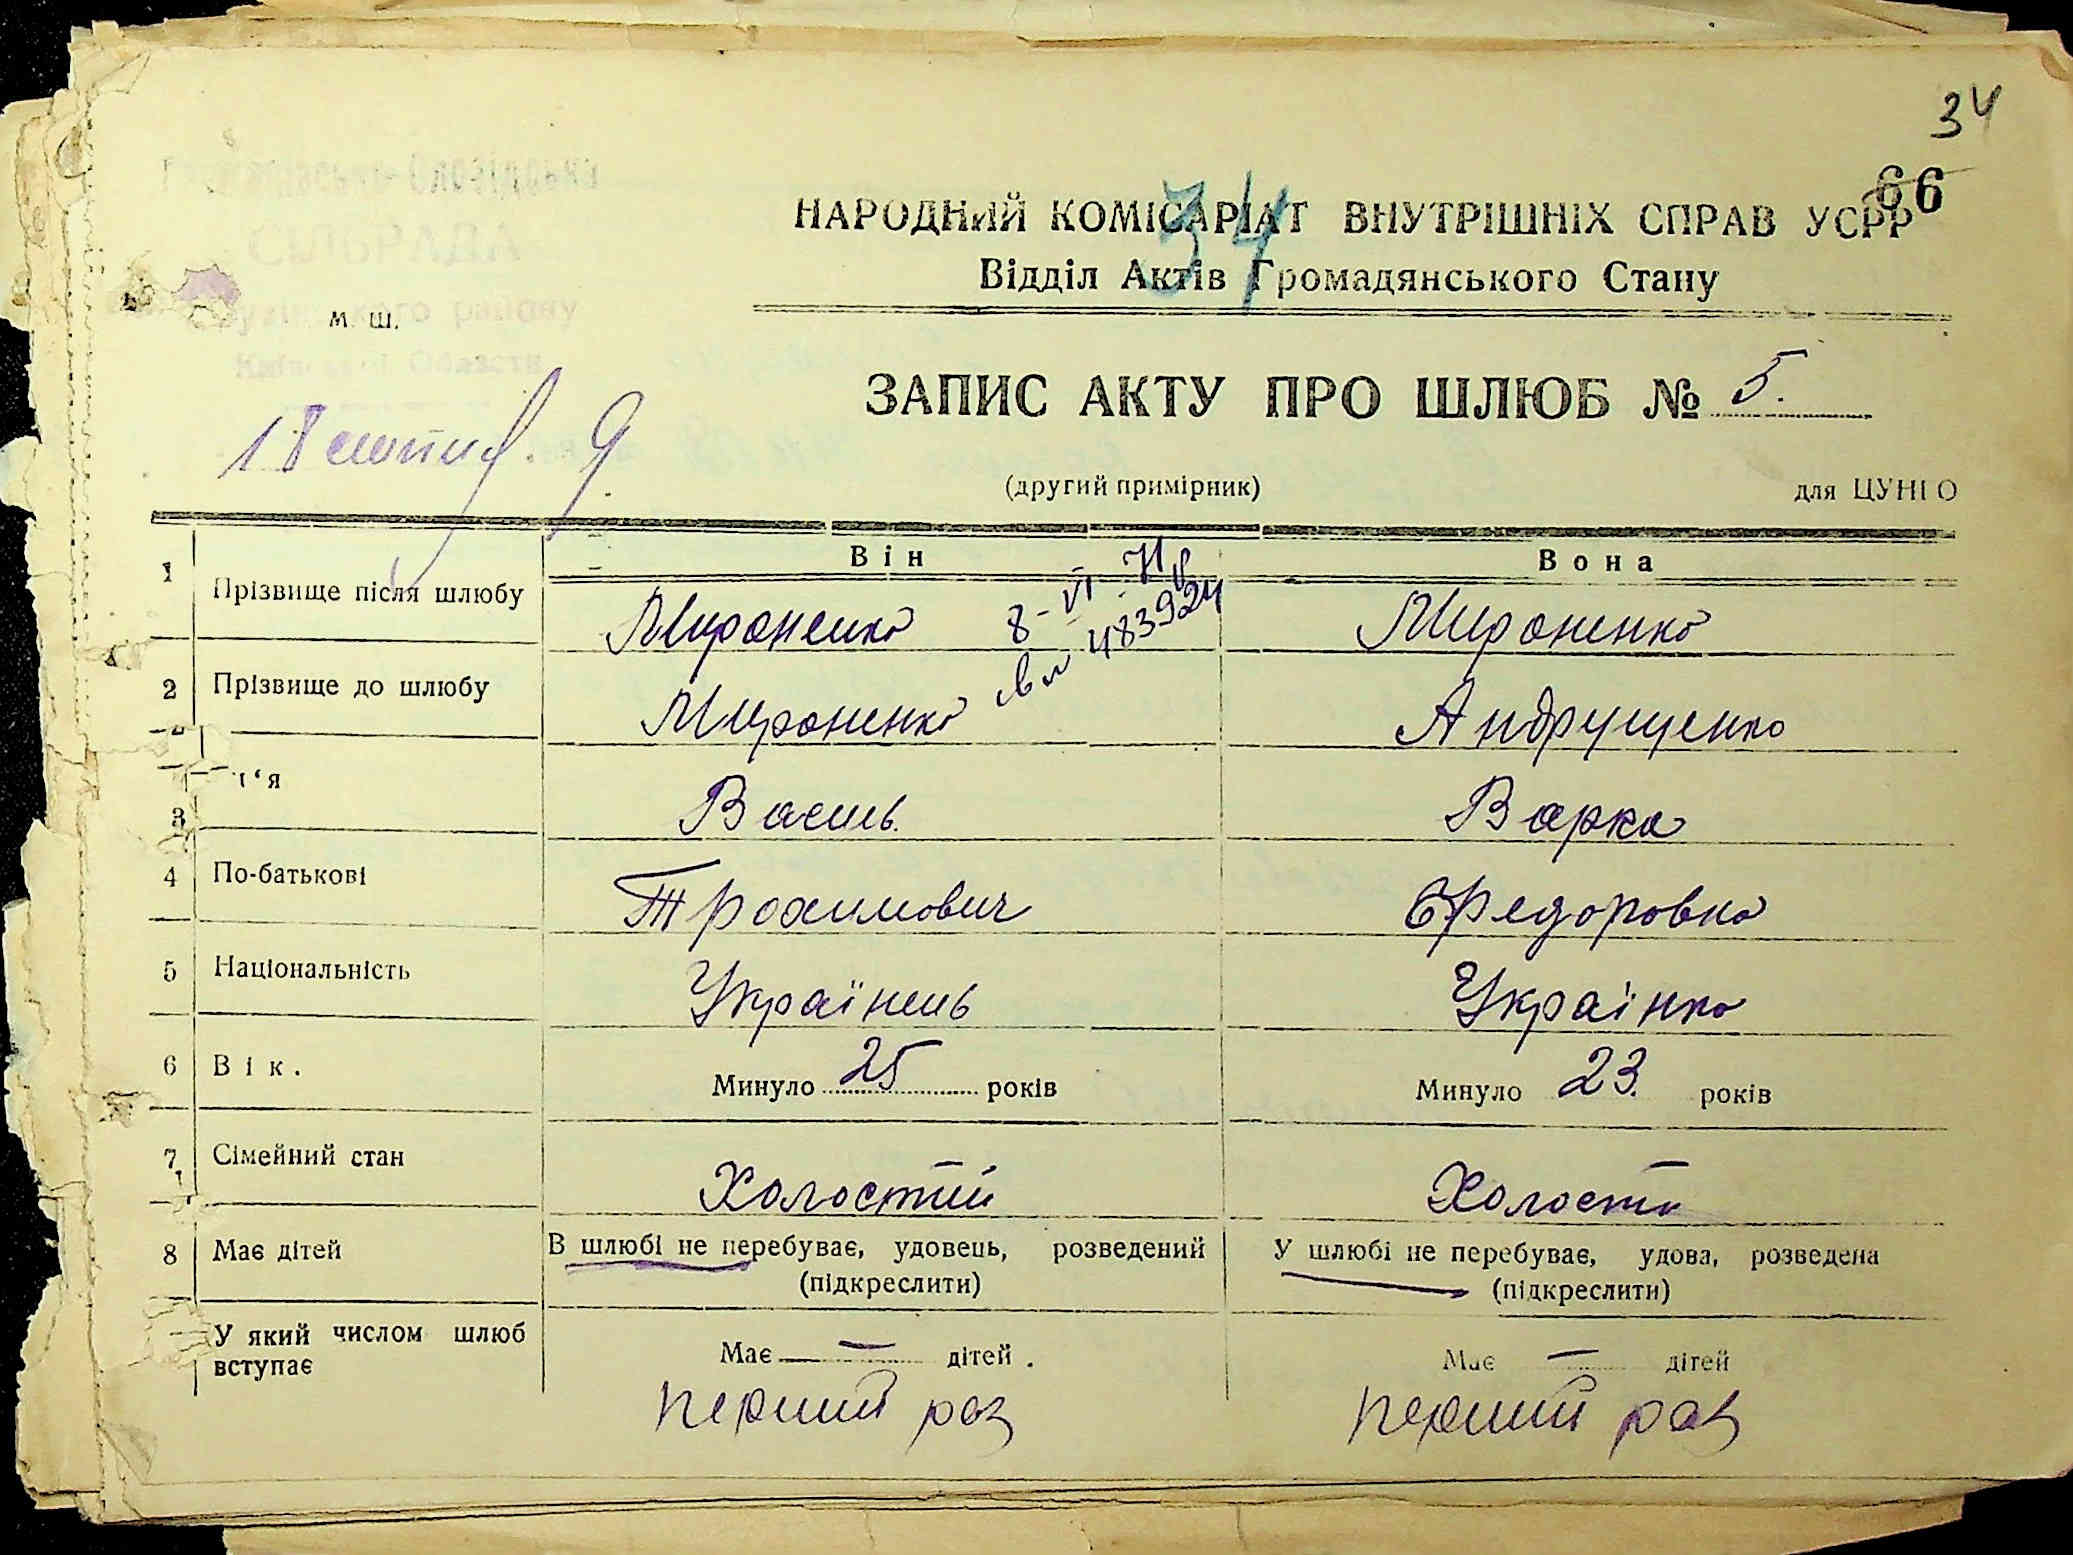 34
66
34
НАРОДНИЙ КОМІСАРІАТ ВНУТРІШНІХ СПРАВ УСРР
Відділ Актів Громадянського Стану
СІЛЬРАДА
району
Київської Області
м. ш.
ЗАПИС АКТУ ПРО ШЛЮБ № 5.
18
(другий примірник)
для ЦУНГО
Він
Вона
8-VI-71р
483924
1 Прізвище після шлюбу Мироненко Мироненко
2 Прізвище до шлюбу Мироненко Андрущенко
3 м'я Василь Варка
4 По-батькові Трохимович Федоровна
5 Національність Українець Українка
6 Вік. Минуло 25 років Минуло 23. років
7 Сімейний стан Холостий Холоста
8 Має дітей В шлюбі не перебуває, удовець, розведений У шлюбі не перебуває, удова, розведена
(підкреслити) (підкреслити)
У який числом шлюб
вступає
Має — дітей. Має — дітей
перший раз перший раз